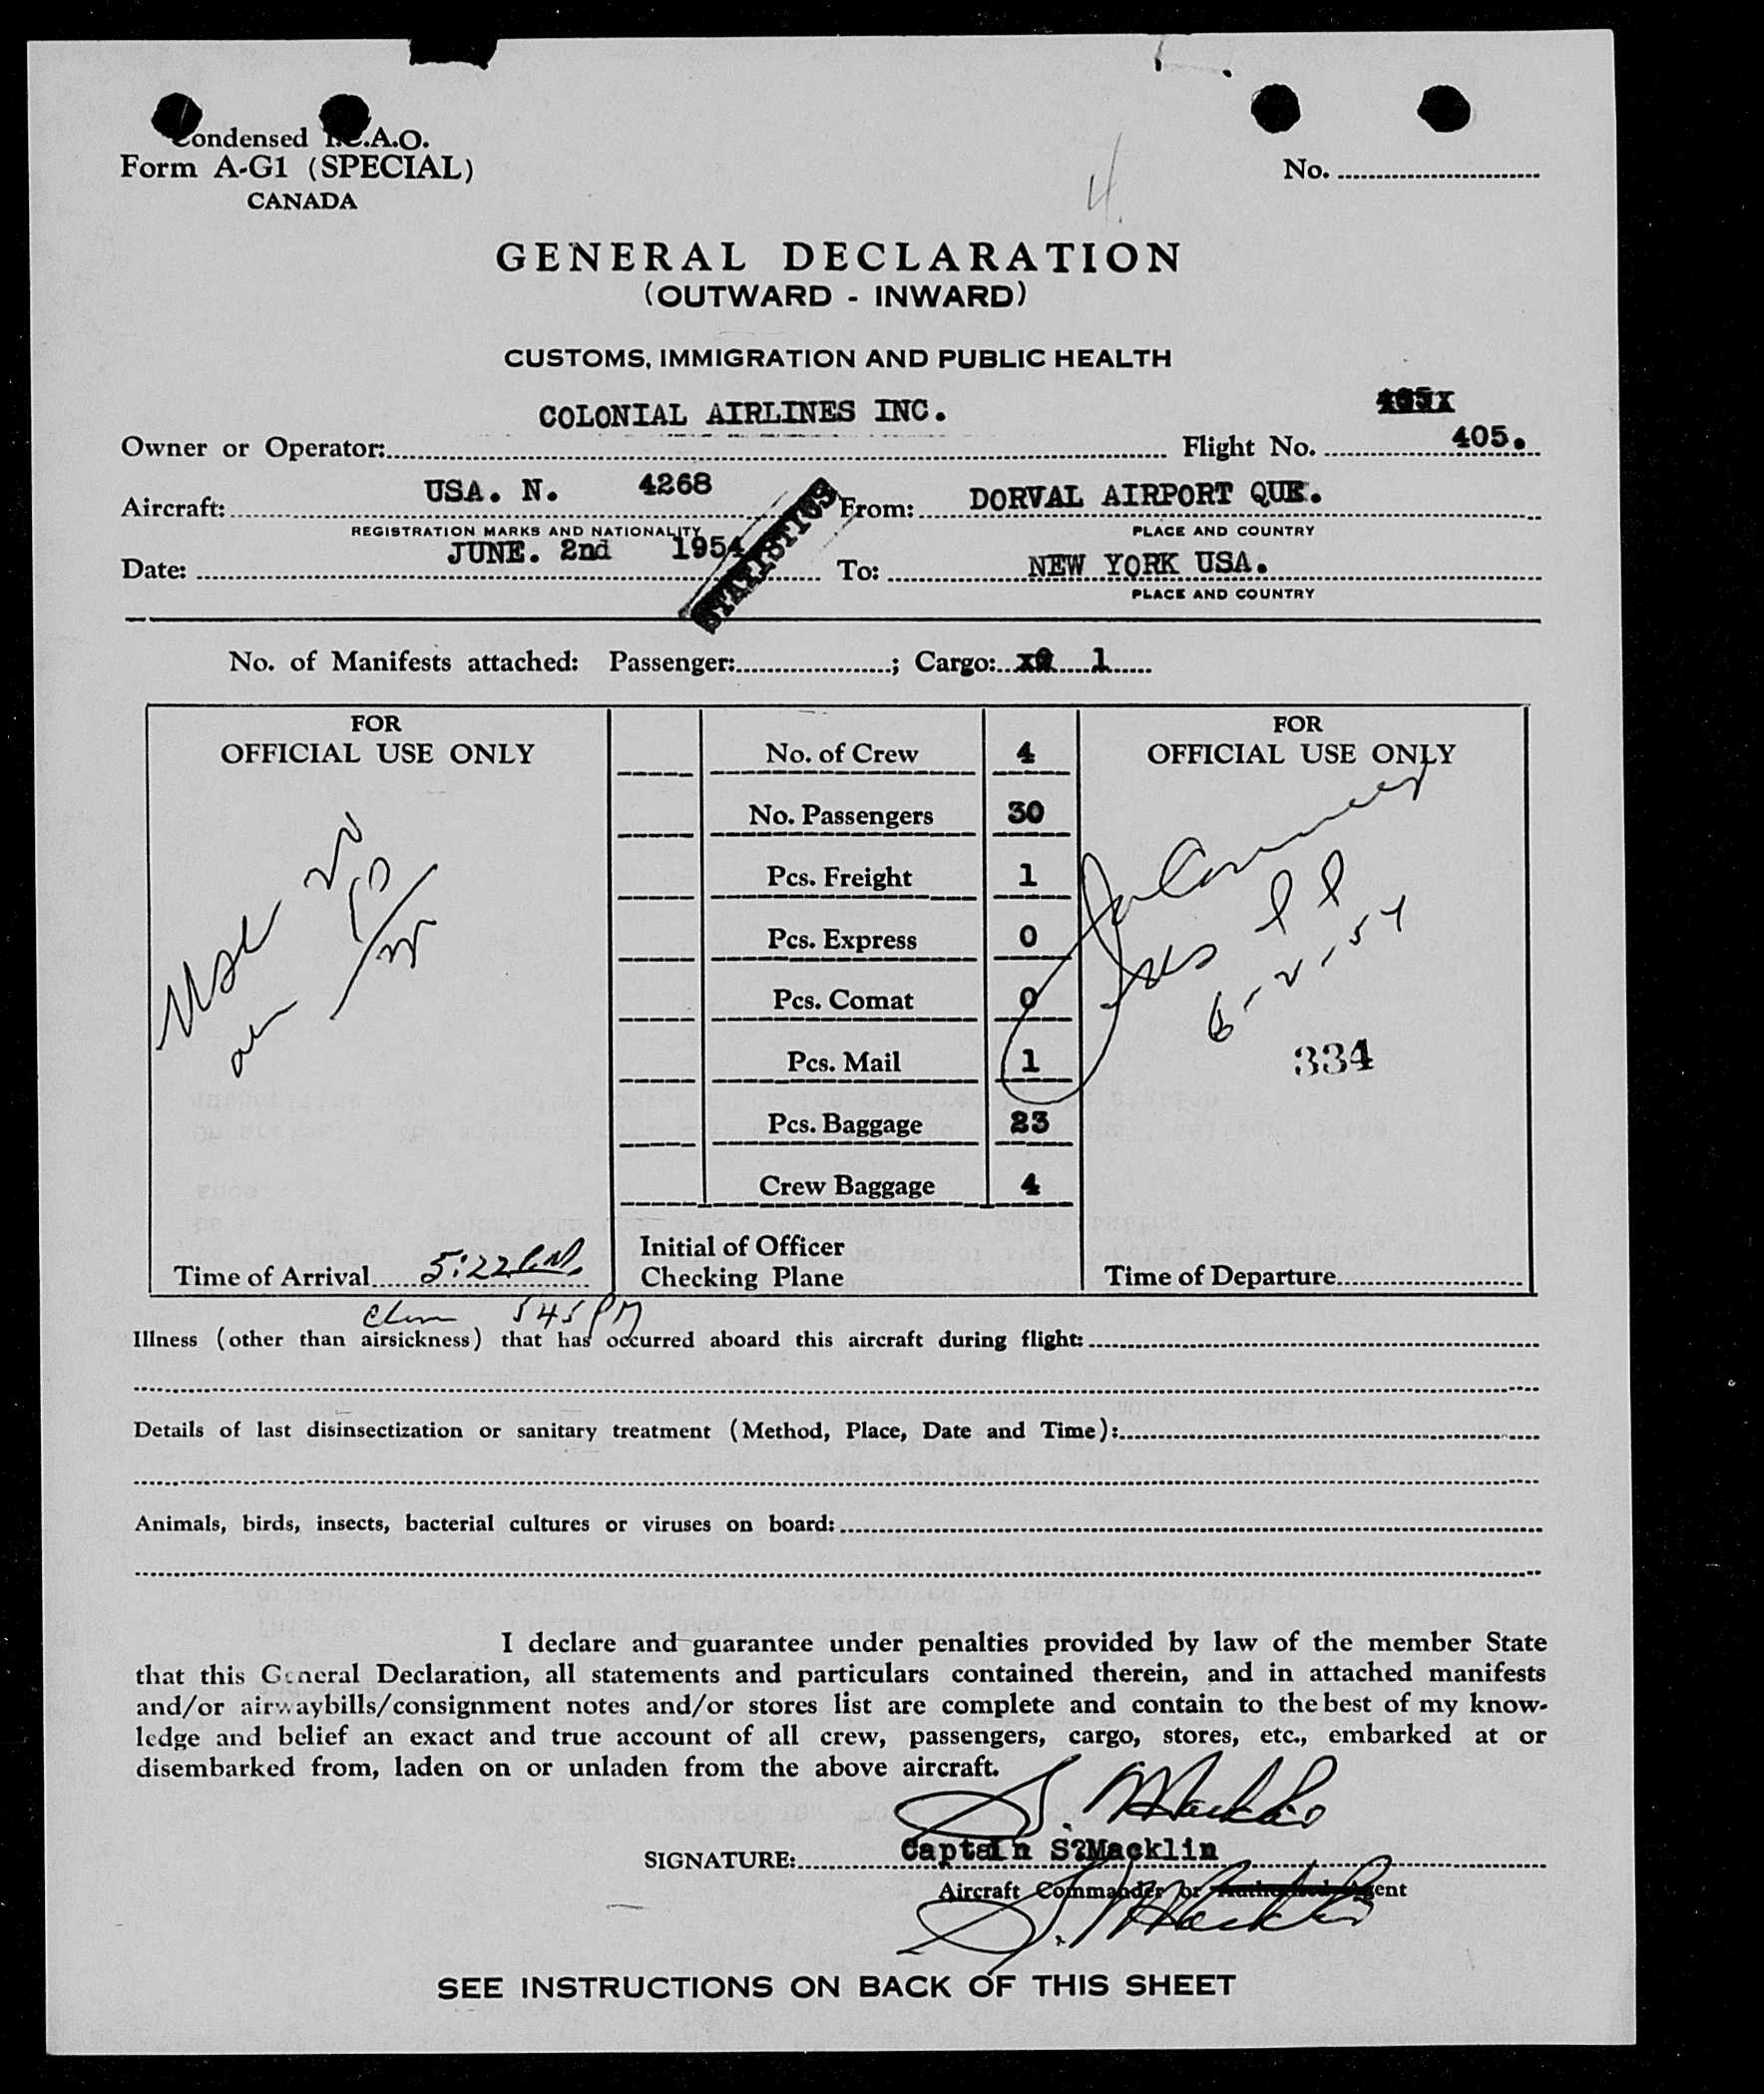 Condensed I.C.A.O.
Form A-G1 (SPECIAL)
CANADA
No.
4.
GENERAL DECLARATION
(OUTWARD - INWARD)
CUSTOMS, IMMIGRATION AND PUBLIC HEALTH
COLONIAL AIRLINES INC.
Owner or Operator: Flight No. 405.
Aircraft: USA. N. 4268 From: DORVAL AIRPORT QUE.
REGISTRATION MARKS AND NATIONALITY PLACE AND COUNTRY
STATISTICS
Date: JUNE. 2nd 1954 To: NEW YORK USA.
PLACE AND COUNTRY
No. of Manifests attached: Passenger: ; Cargo: 1
FOR
OFFICIAL USE ONLY
No. of Crew 4
No. Passengers 30
Pcs. Freight 1
Pcs. Express 0
Pcs. Comat 0
Pcs. Mail 1
Pcs. Baggage 23
Crew Baggage 4
FOR
OFFICIAL USE ONLY
6-2-54
334
Time of Arrival 5:22 P.M.
Initial of Officer
Checking Plane
Time of Departure
545 PM
Illness (other than airsickness) that has occurred aboard this aircraft during flight:
Details of last disinsectization or sanitary treatment (Method, Place, Date and Time):
Animals, birds, insects, bacterial cultures or viruses on board:
I declare and guarantee under penalties provided by law of the member State
that this General Declaration, all statements and particulars contained therein, and in attached manifests
and/or airwaybills/consignment notes and/or stores list are complete and contain to the best of my know-
ledge and belief an exact and true account of all crew, passengers, cargo, stores, etc., embarked at or
disembarked from, laden on or unladen from the above aircraft.
S. Macklin
SIGNATURE: Captain S?Macklin
Aircraft Commander or Authorized Agent
S. Macklin
SEE INSTRUCTIONS ON BACK OF THIS SHEET